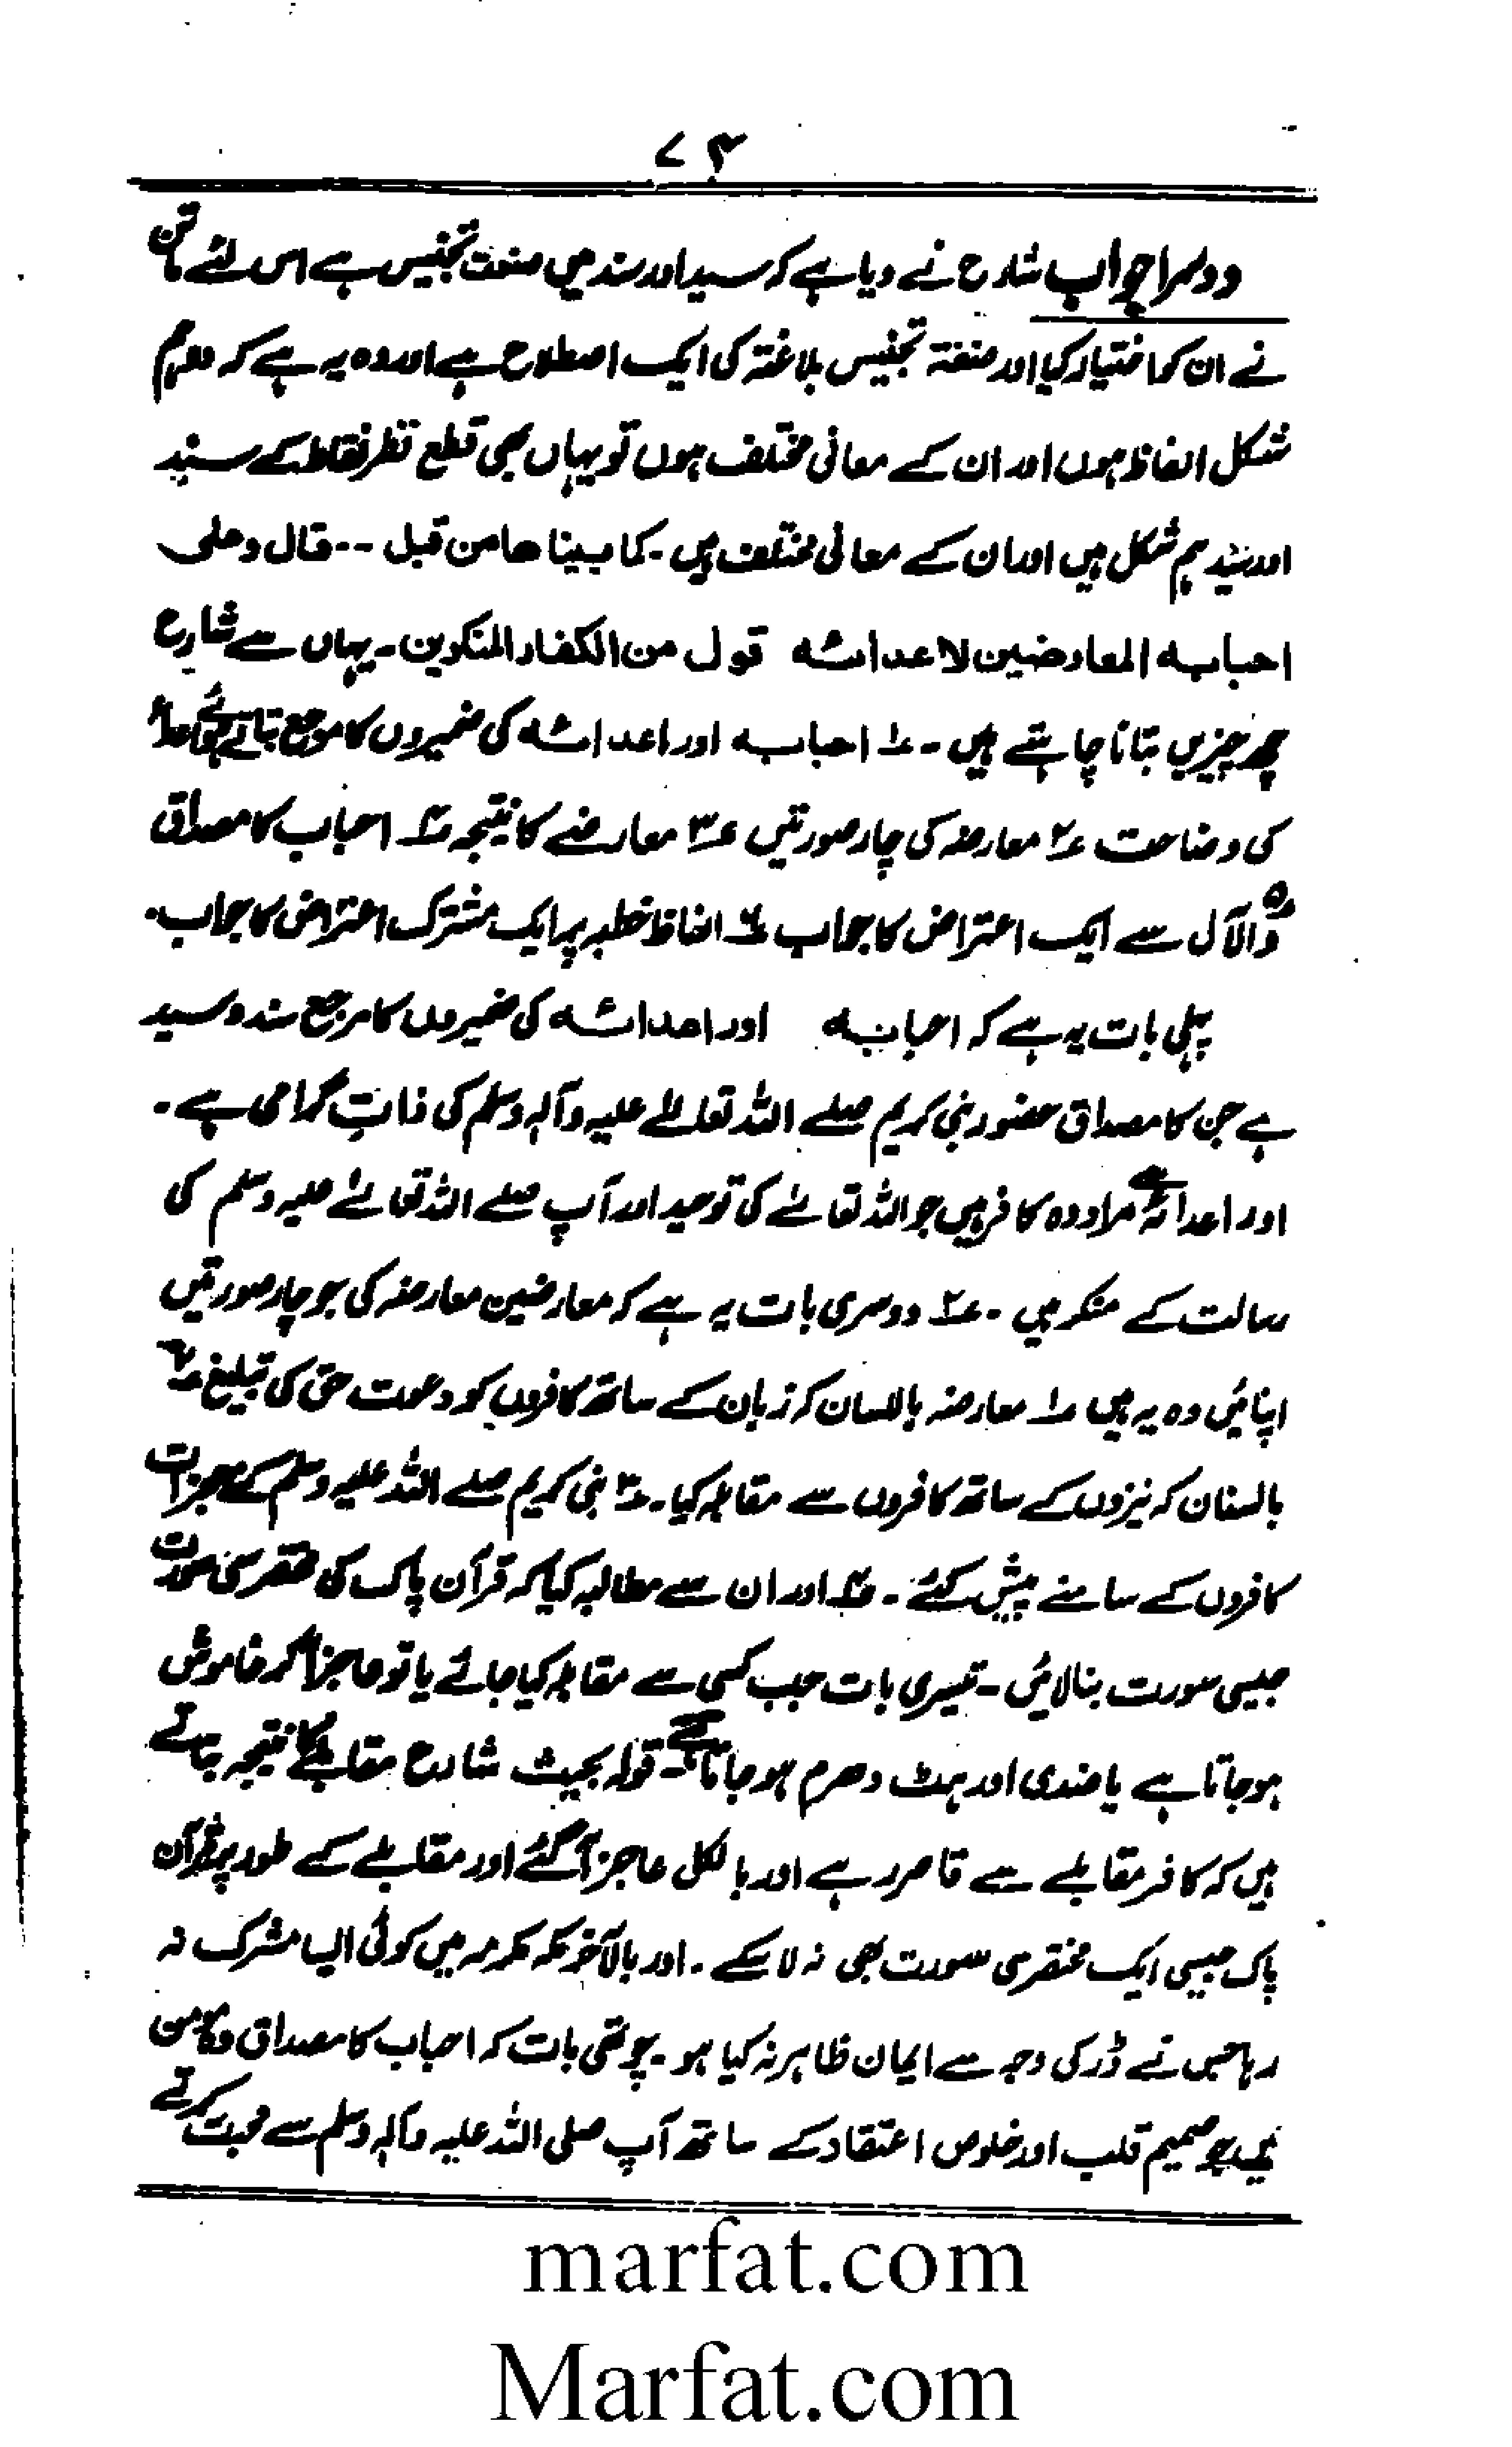 ۷۳
دوسرا جواب شارح نے دیا ہے کہ سید اور سند میں صنعت تجنیس ہے اس لئے ماتن
نے ان کو اختیار کیا اور صنعۃ تجنیس بلاغۃ کی ایک اصطلاح ہے اور وہ یہ ہے کہ دو ہم
شکل الفاظ ہوں اور ان کے معانی مختلف ہوں تو یہاں بھی قطع نظر نقاط کے سید
اور سند ہم شکل ہیں اور ان کے معانی مختلف ہیں۔ کما بینا ھا من قبل -- قال وعلی
احبابه المعارضین لاعدائه قول من الکفار المنکرین۔ یہاں سے شارح
چھ چیزیں بتانا چاہتے ہیں۔ ۱؎ احبابه اور اعدائه کی ضمیروں کا مرجع بتاتے ہوئے اعداء
کی وضاحت ۲؎ معارضہ کی چار صورتیں ۳؎ معارضے کا نتیجہ ۴؎ احباب کا مصداق
۵؎ والآل سے ایک اعتراض کا جواب ۶؎ الفاظ خطبہ پر ایک مشترک اعتراض کا جواب۔
پہلی بات یہ ہے کہ احبابه اور اعدائه کی ضمیروں کا مرجع سند و سید
ہے جن کا مصداق حضور نبی کریم صلے اللہ تعالےٰ علیہ وآلہ وسلم کی ذاتِ گرامی ہے۔
اور اعدائه سے مراد وہ کافر ہیں جو اللہ تعالےٰ کی توحید اور آپ صلے اللہ تعالےٰ علیہ وسلم کی
رسالت کے منکر ہیں۔ ۲؎ دوسری بات یہ ہے کہ معارضین معارضہ کی جو چار صورتیں
اپنائیں وہ یہ ہیں ۱؎ معارضہ باللسان کہ زبان کے ساتھ کافروں کو دعوت حق کی تبلیغ ۲؎
بالسنان کہ نیزوں کے ساتھ کافروں سے مقابلہ کیا۔ ۳؎ نبی کریم صلے اللہ علیہ وسلم کے معجزات
کافروں کے سامنے پیش کئے۔ ۴؎ اور ان سے مطالبہ کیا کہ قرآن پاک کی مختصر سی سورت
جیسی سورت بنا لائیں۔ تیسری بات جب کسی سے مقابلہ کیا جائے یا تو عاجز آ کر خاموش
ہو جاتا ہے یا ضدی اور ہٹ دھرم ہو جاتا ہے۔ قولہ بحیث شارح مقابلے کا نتیجہ بتاتے
ہیں کہ کافر مقابلے سے قاصر رہے اور بالکل عاجز آ گئے اور مقابلے کے طور پر قرآن
پاک جیسی ایک مختصر سی سورت بھی نہ لا سکے۔ اور بالآخر مکہ مکرمہ میں کوئی ایسا مشرک نہ
رہا جس نے ڈر کی وجہ سے ایمان ظاہر نہ کیا ہو۔ چوتھی بات کہ احباب کا مصداق وہ مومن
ہیں جو صمیم قلب اور خلوص اعتقاد کے ساتھ آپ صلی اللہ علیہ وآلہ وسلم سے محبت کرتے
marfat.com
Marfat.com